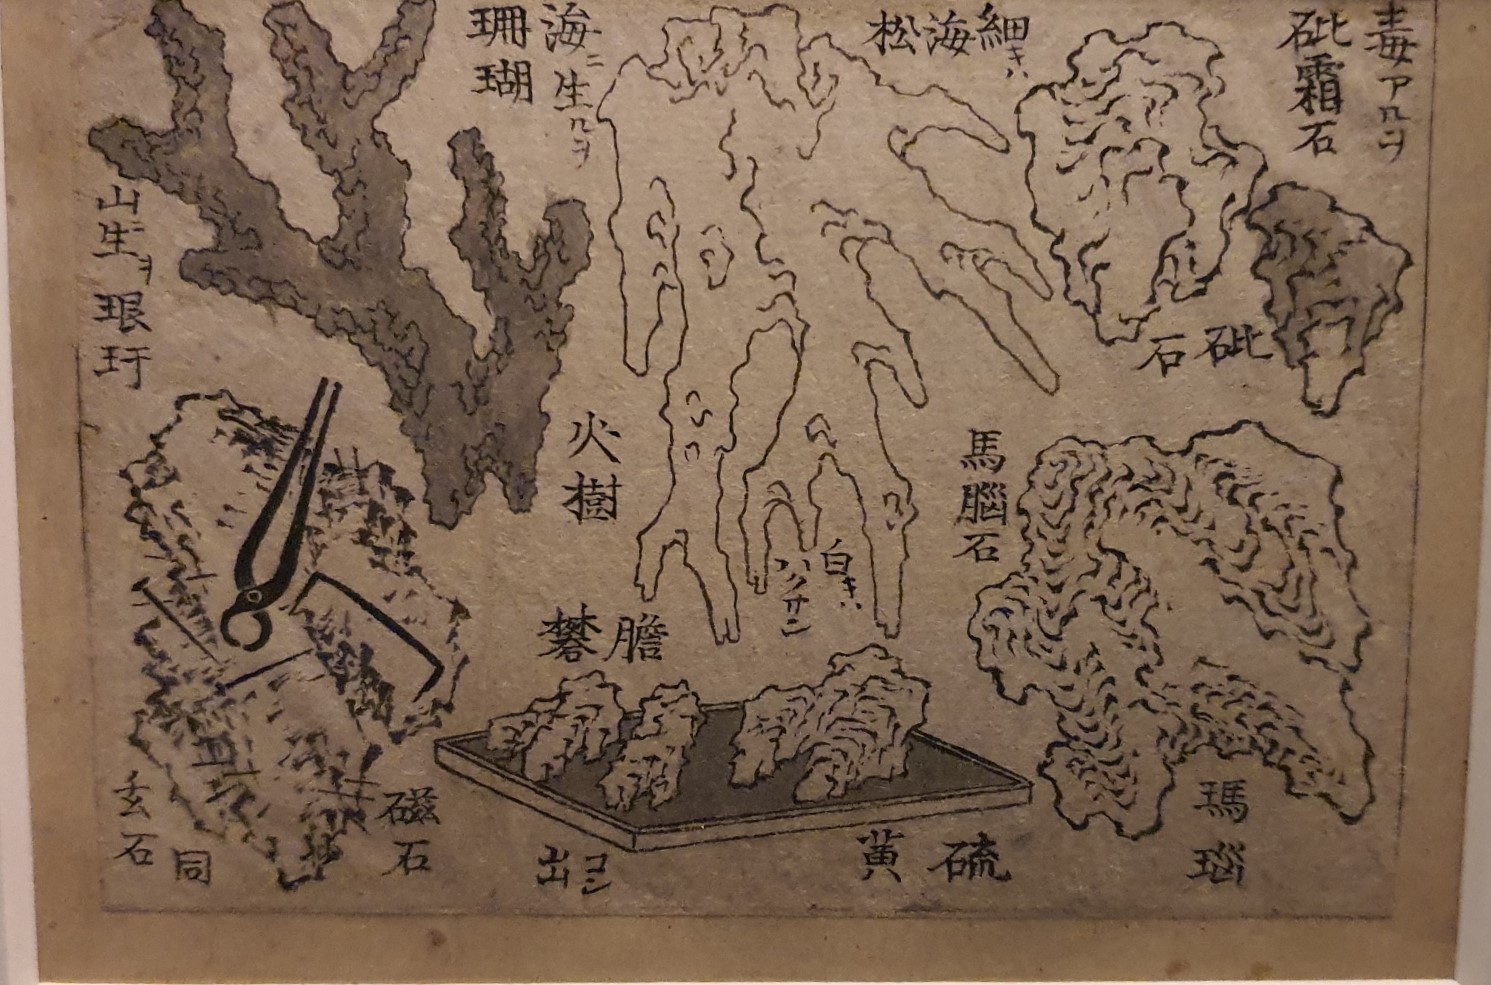 毒アルヲ
砒霜石
砒石
細キハ
海松
海ニ生ルヲ
珊瑚
山ニ生ヲ
琅玕
火樹
馬腦石
瑪瑙
白キハ
ハクサン
膽礬
硫黄
コシ
出
磁石
同
玄石